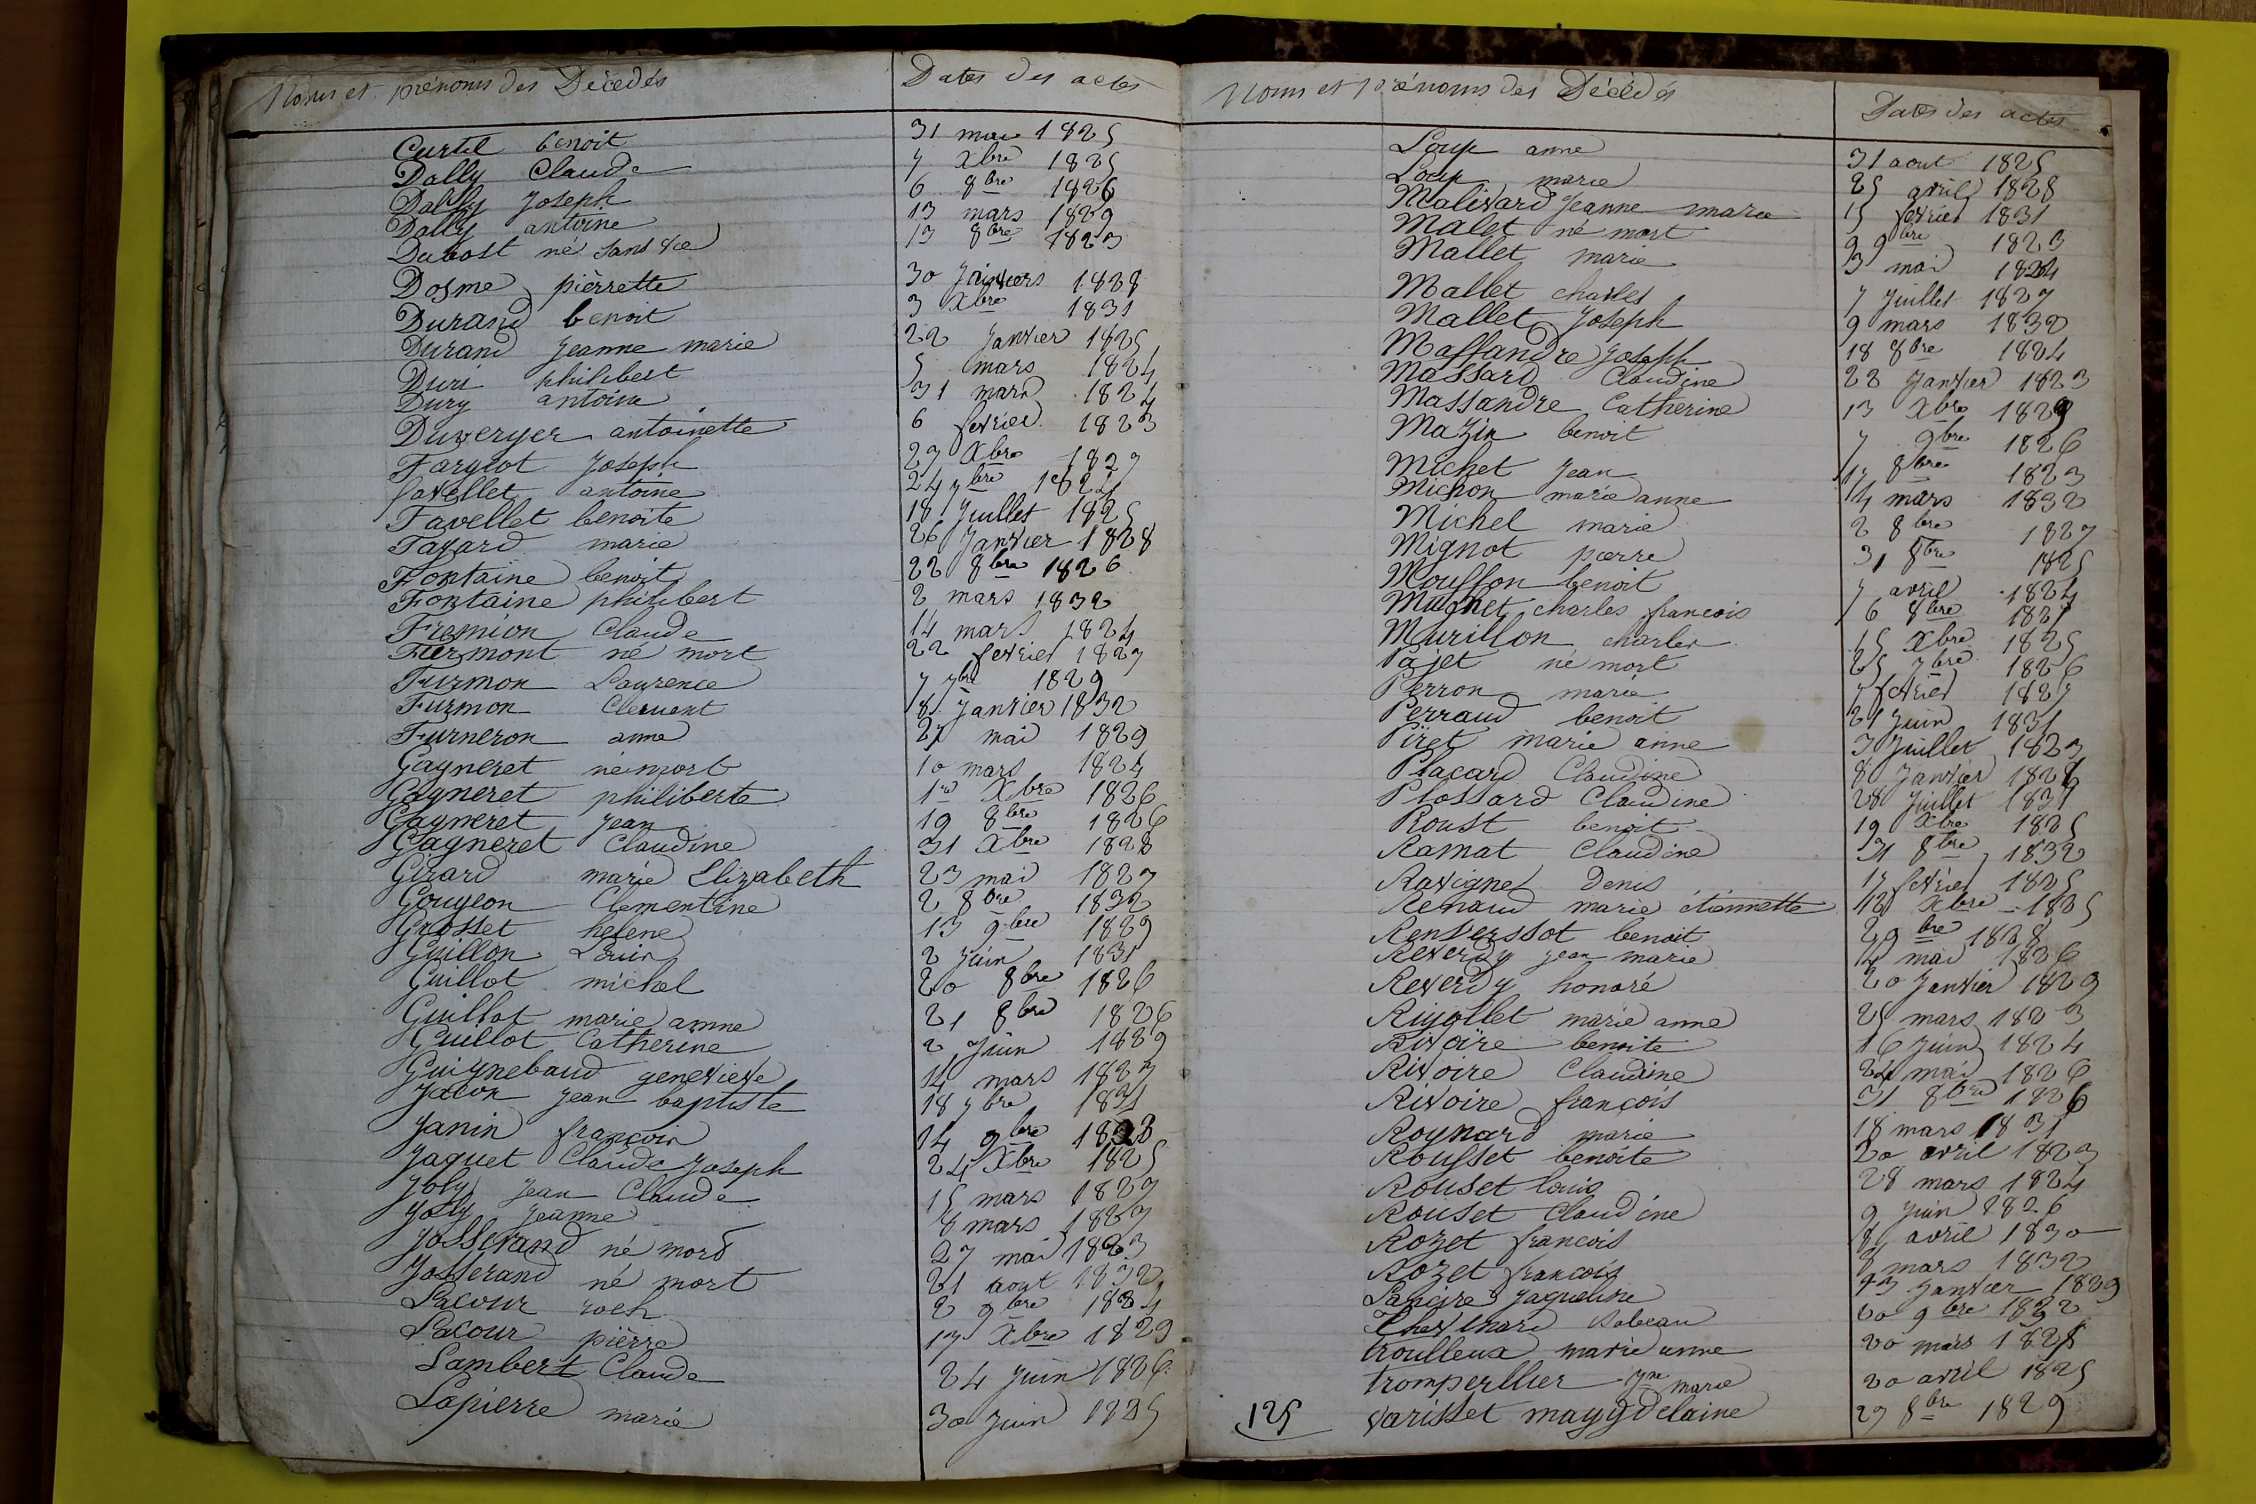 Noms et prénoms des Décedés Dates des actes
Curtil benoit 31 mai 1825
Dally Claude 7 Xbre 1825
Dally Joseph 6 8bre 1826
Dally antoine 13 mars 1829
Dubost né sans vie 13 8bre 1823
Dosme pièrrette 30 Janviers 1828
Durand benoit 3 Xbre 1831
Durand Jeanne marie 22 Janvier 1825
Duri philibert 5 mars 1824
Dury antoine 31 mars 1824
Duverger antoinette 6 fevrier 1823
Fargeot Joseph 27 Xbre 1827
favellet antoine 24 7bre
Favellet benoite 18 Juillet 1825
Favard marie 26 Janvier 1828
Fontaine benoit 22 8bre 1826
Fontaine philibert 2 mars 1832
Fremion Claude 14 mars 1824
Furmont né mort 22 fevrier 1827
Furmon Laurence 7 7bre 1829
Furmon Clement 8 Janvier 1832
Furneron anne 27 mai 1829
Gagneret né mort 10 mars 1824
Gagneret philiberte 1er Xbre 1826
Gagneret Jean 19 8bre 1826
Gagneret Claudine 31 Xbre 1828
Girard marie Elizabeth 23 mai 1827
Goujeon Clementine 2 8bre 1832
Grosset helene 13 9bre 1829
Guillon Louis 2 Juin 1831
Guillot michel 20 8bre 1826
Guillot marie anne 21 8bre 1826
Guillot Catherine 2 Juin 1829
Guignebaud genevieve 14 mars 1827
Jacon Jean baptiste 18 7bre 1831
Janin françois 14 9bre 1828
Jaquet Claude Joseph 24 Xbre 1825
Joly Jean Claude 15 mars 1827
Joly Jeanne 8 mars 1827
Josserand né mort 27 mai 1823
Josserand né mort 21 aout 1832
Lacour roch 2 9bre 1824
Lacour pièrre 17 Xbre 1829
Lambert Claude 24 Juin 1826
Lapierre marie 30 Juin 1825
Noms et prénoms des Décédés Dates des actes
Loup anne 31 aout 1825
Loup marie 25 avril 1828
Malivard Jeanne marie 15 fevrier 1831
Malet né mort 9 9bre 1823
Mallet marie 3 mai 1824
Mallet charles 7 Juillet 1827
Mallet Joseph 9 mars 1832
Massandre Joseph 18 8bre 1824
Massard Claudine 22 Janvier 1823
Massandre Catherine 13 Xbre 1829
Mazin benoit 7 9bre 1826
Michet Jean 8bre 1823
Michon marie anne 14 mars 1832
Michel marie 2 8bre 1827
Mignot pierre 31 8bre 1825
Mousson benoit 7 avril 1824
Mugnet charles francois 6 8bre 1827
Murillon charles 15 Xbre 1825
Pajet né mort 25 7bre 1826
Perron marie 7 fevrier 1827
Perraud benoit 21 Juin 1831
Piret marie anne 3 Juillet 1823
Placard Claudine 8 Janvier 1828
Plossard Claudine 28 Juillet 1831
Roust benoit 19 Xbre 1825
Ramat Claudine 31 8bre 1832
Ravignet Denis 17 fevrier 1825
Renaud marie étiennette 12 Xbre 1825
Renverssot benoit 2 9bre 1828
Reverdy jean marie 14 mai 1826
Reverdy honoré 20 Janvier 1829
Rigollet marie anne 25 mars 1823
Rivoire benoite 16 Juin 1824
Rivoire Claudine 24 mai 1826
Rivoire françois 31 8bre 1826
Roynard marie 18 mars 1831
Rousset benoite 20 avril 1823
Rouset louis 28 mars 1824
Rouset Claudine 9 Juin 1826
Rozet francois 8 avril 1830
Rozet francois 8 mars 1832
Jaqueline 13 Janvier 1829
20 9bre
troulleux marie anne 20 mars 1828
tromperllier Jne marie 20 avril 1825
125 varisset maygdelaine 27 8bre 1829